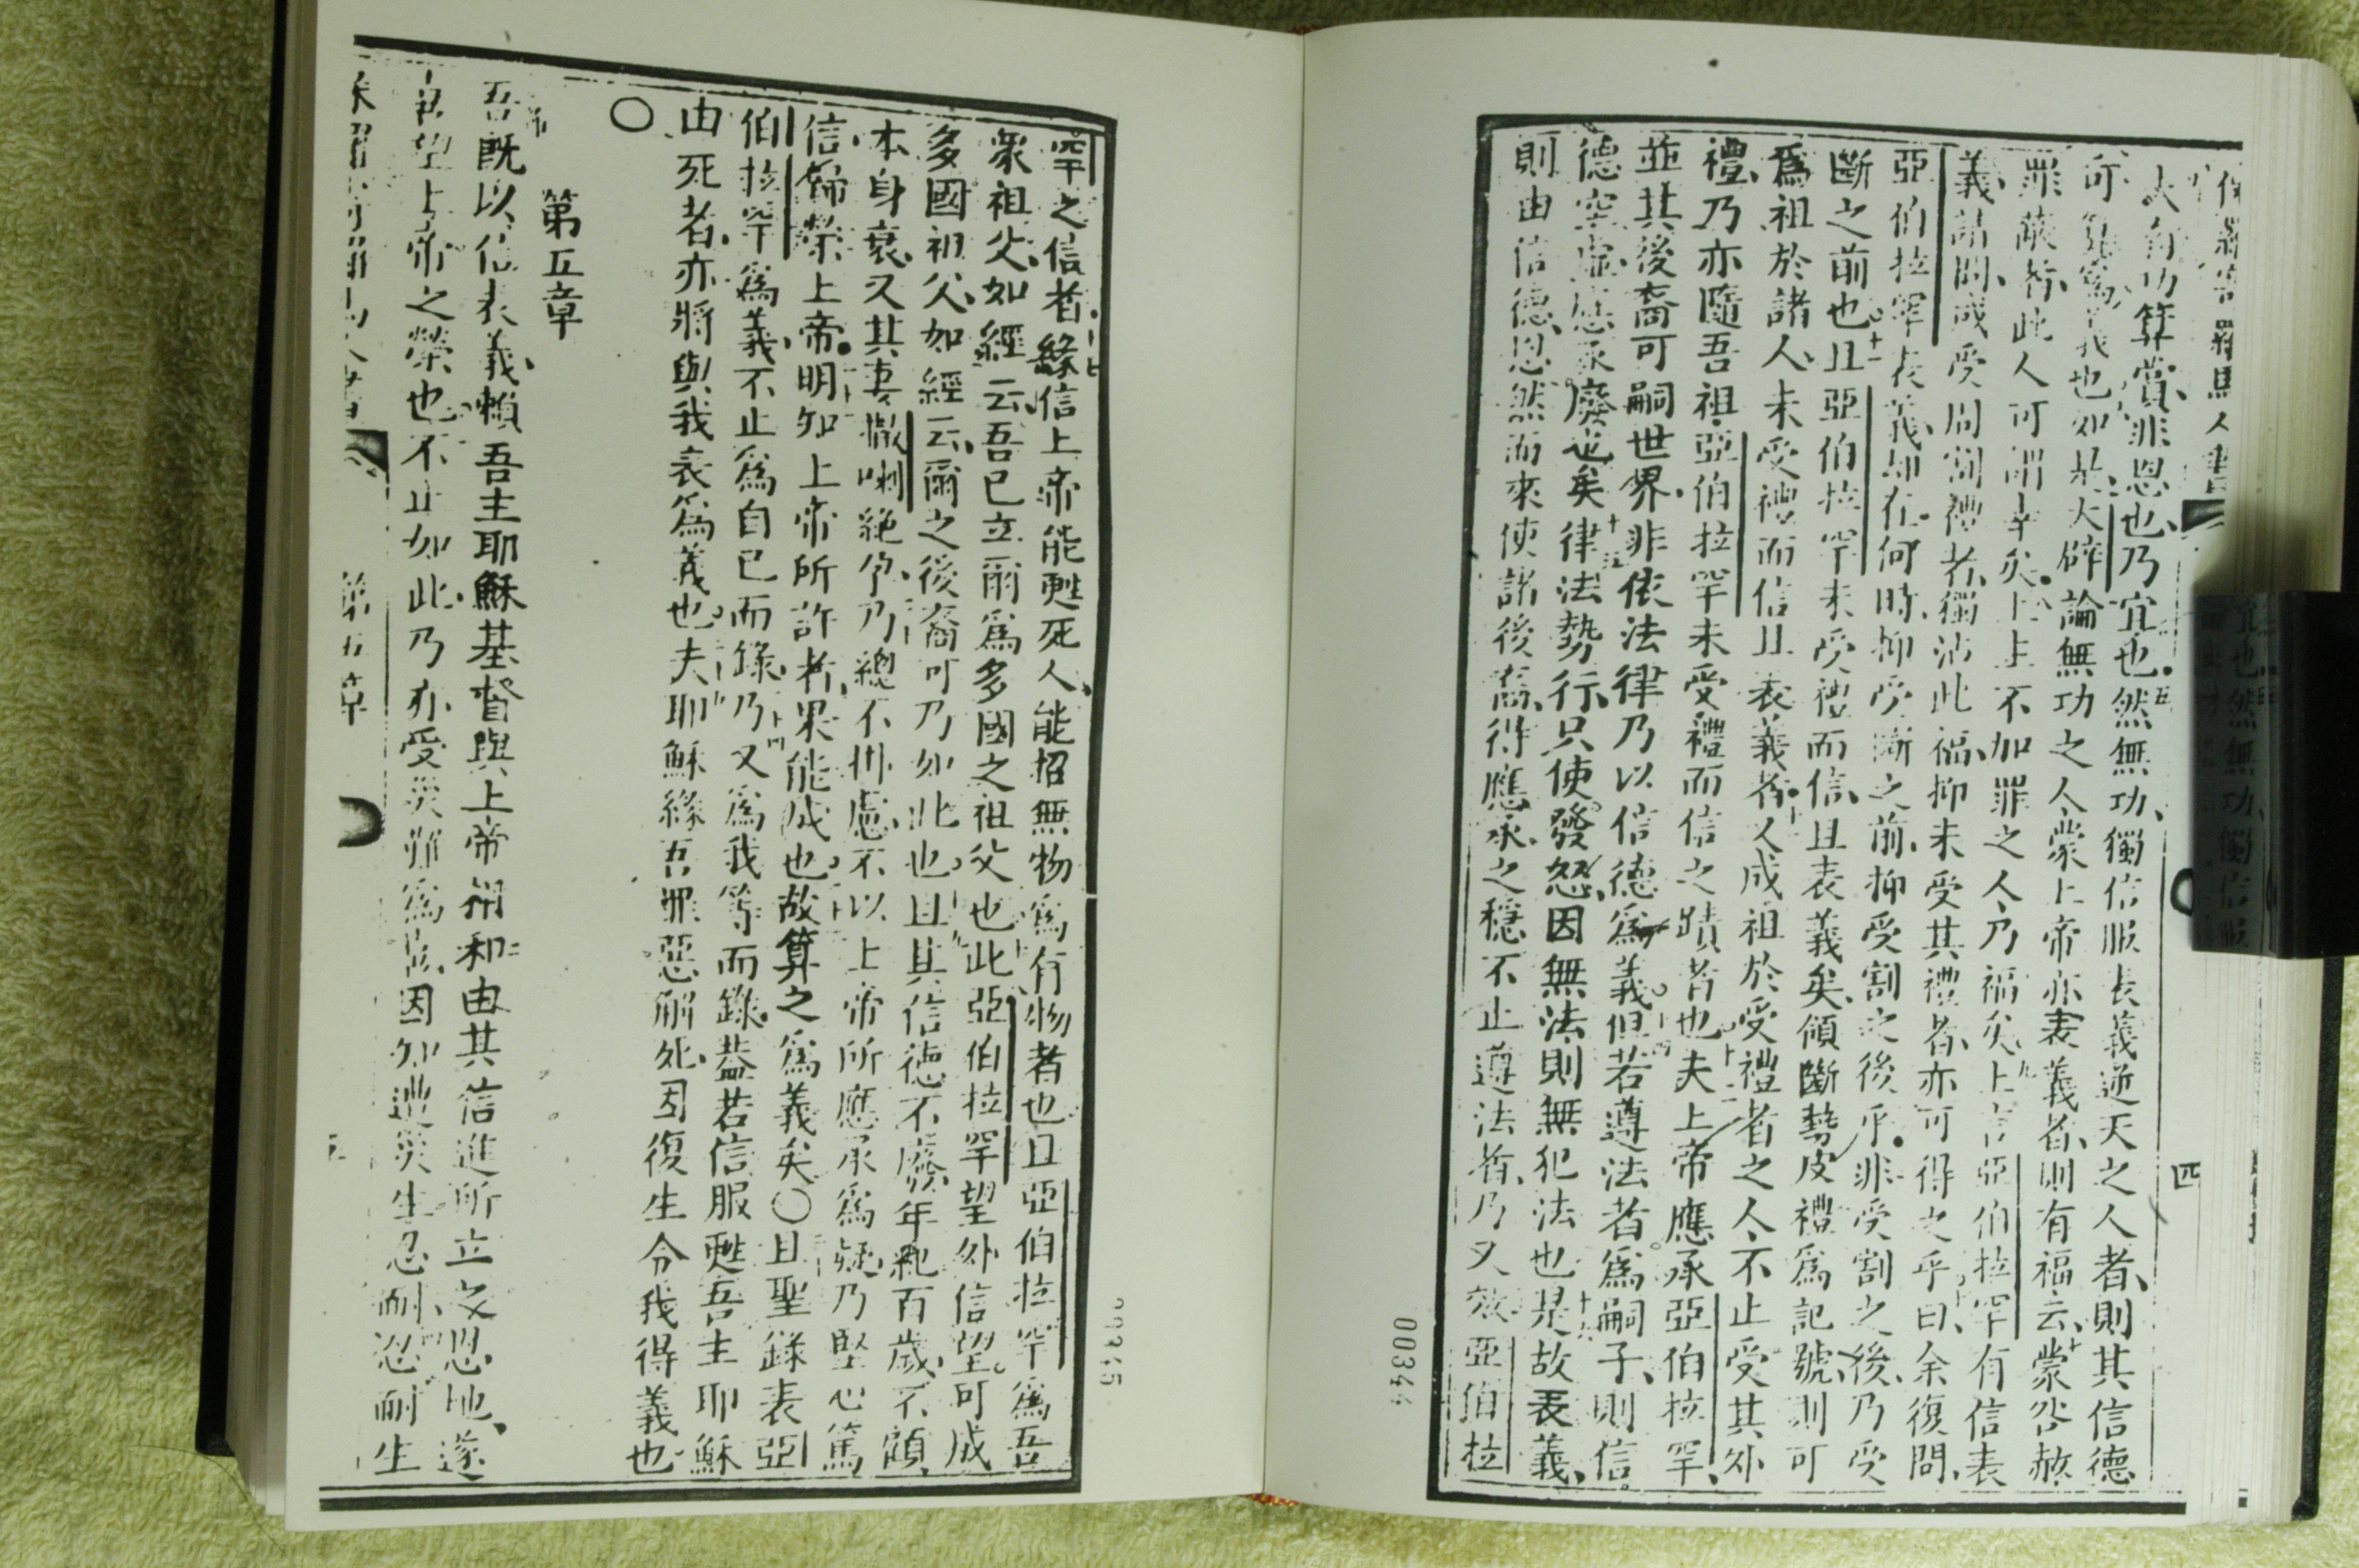 保羅寄羅馬人書
四
夫有功算賞非恩也乃宜也五然無功獨信服表義逆天之人者則其信德
可算爲義也如是大辟論無功之人蒙上帝亦表義者則有福云蒙咎赦
罪蔽者此人可謂幸矣上上不加罪之人乃福矣九上言亞伯拉罕有信表
義請問或受周割禮者獨沾此福抑未受其禮者亦可得之乎曰余復問
亞伯拉罕表義如在何時抑受斷之前抑受割之後乎非受割之後乃受
斷之前也十一且亞伯拉罕未受禮而信且表義矣傾斷勢皮禮爲記號則可
爲祖於諸人未受禮而信且表義者又成祖於受禮者之人不止受其外
禮乃亦隨吾祖亞伯拉罕未受禮而信之蹟者也夫上帝應承亞伯拉罕
並其後裔可嗣世界非依法律乃以信德爲義十四但若遵法者爲嗣子則信
德空虛應承廢也矣十五律法勢行只使發怒因無法則無犯法也十六是故表義
則由信德恩然而來使諸後裔得應承之穩不止遵法者乃又效亞伯拉
00344
罕之信者十七緣信上帝能甦死人能招無物爲有物者也且亞伯拉罕爲吾
衆祖父如經云吾已立爾爲多國之祖父也此亞伯拉罕望外信望可成
多國祖父如經云爾之後裔可乃如此也十九且其信德不廢年紀百歲不顧
本身衰又其妻撒喇絶孕乃總不掛慮不以上帝所應承爲疑乃堅心篤
信歸榮上帝明知上帝所許者果能成也故算之爲義矣〇且聖錄表亞
伯拉罕爲義不止爲自己而錄乃又爲我等而錄葢若信服甦吾主耶穌
由死者亦將與我表爲義也夫耶穌緣吾罪惡解死因復生令我得義也
〇
第五章
吾既以信表義賴吾主耶穌基督與上帝相和二由其信進所立之恩地遂
以望上帝之榮也不止如此乃亦受災難爲喜因知遭災生忍耐忍耐生
第五章
五